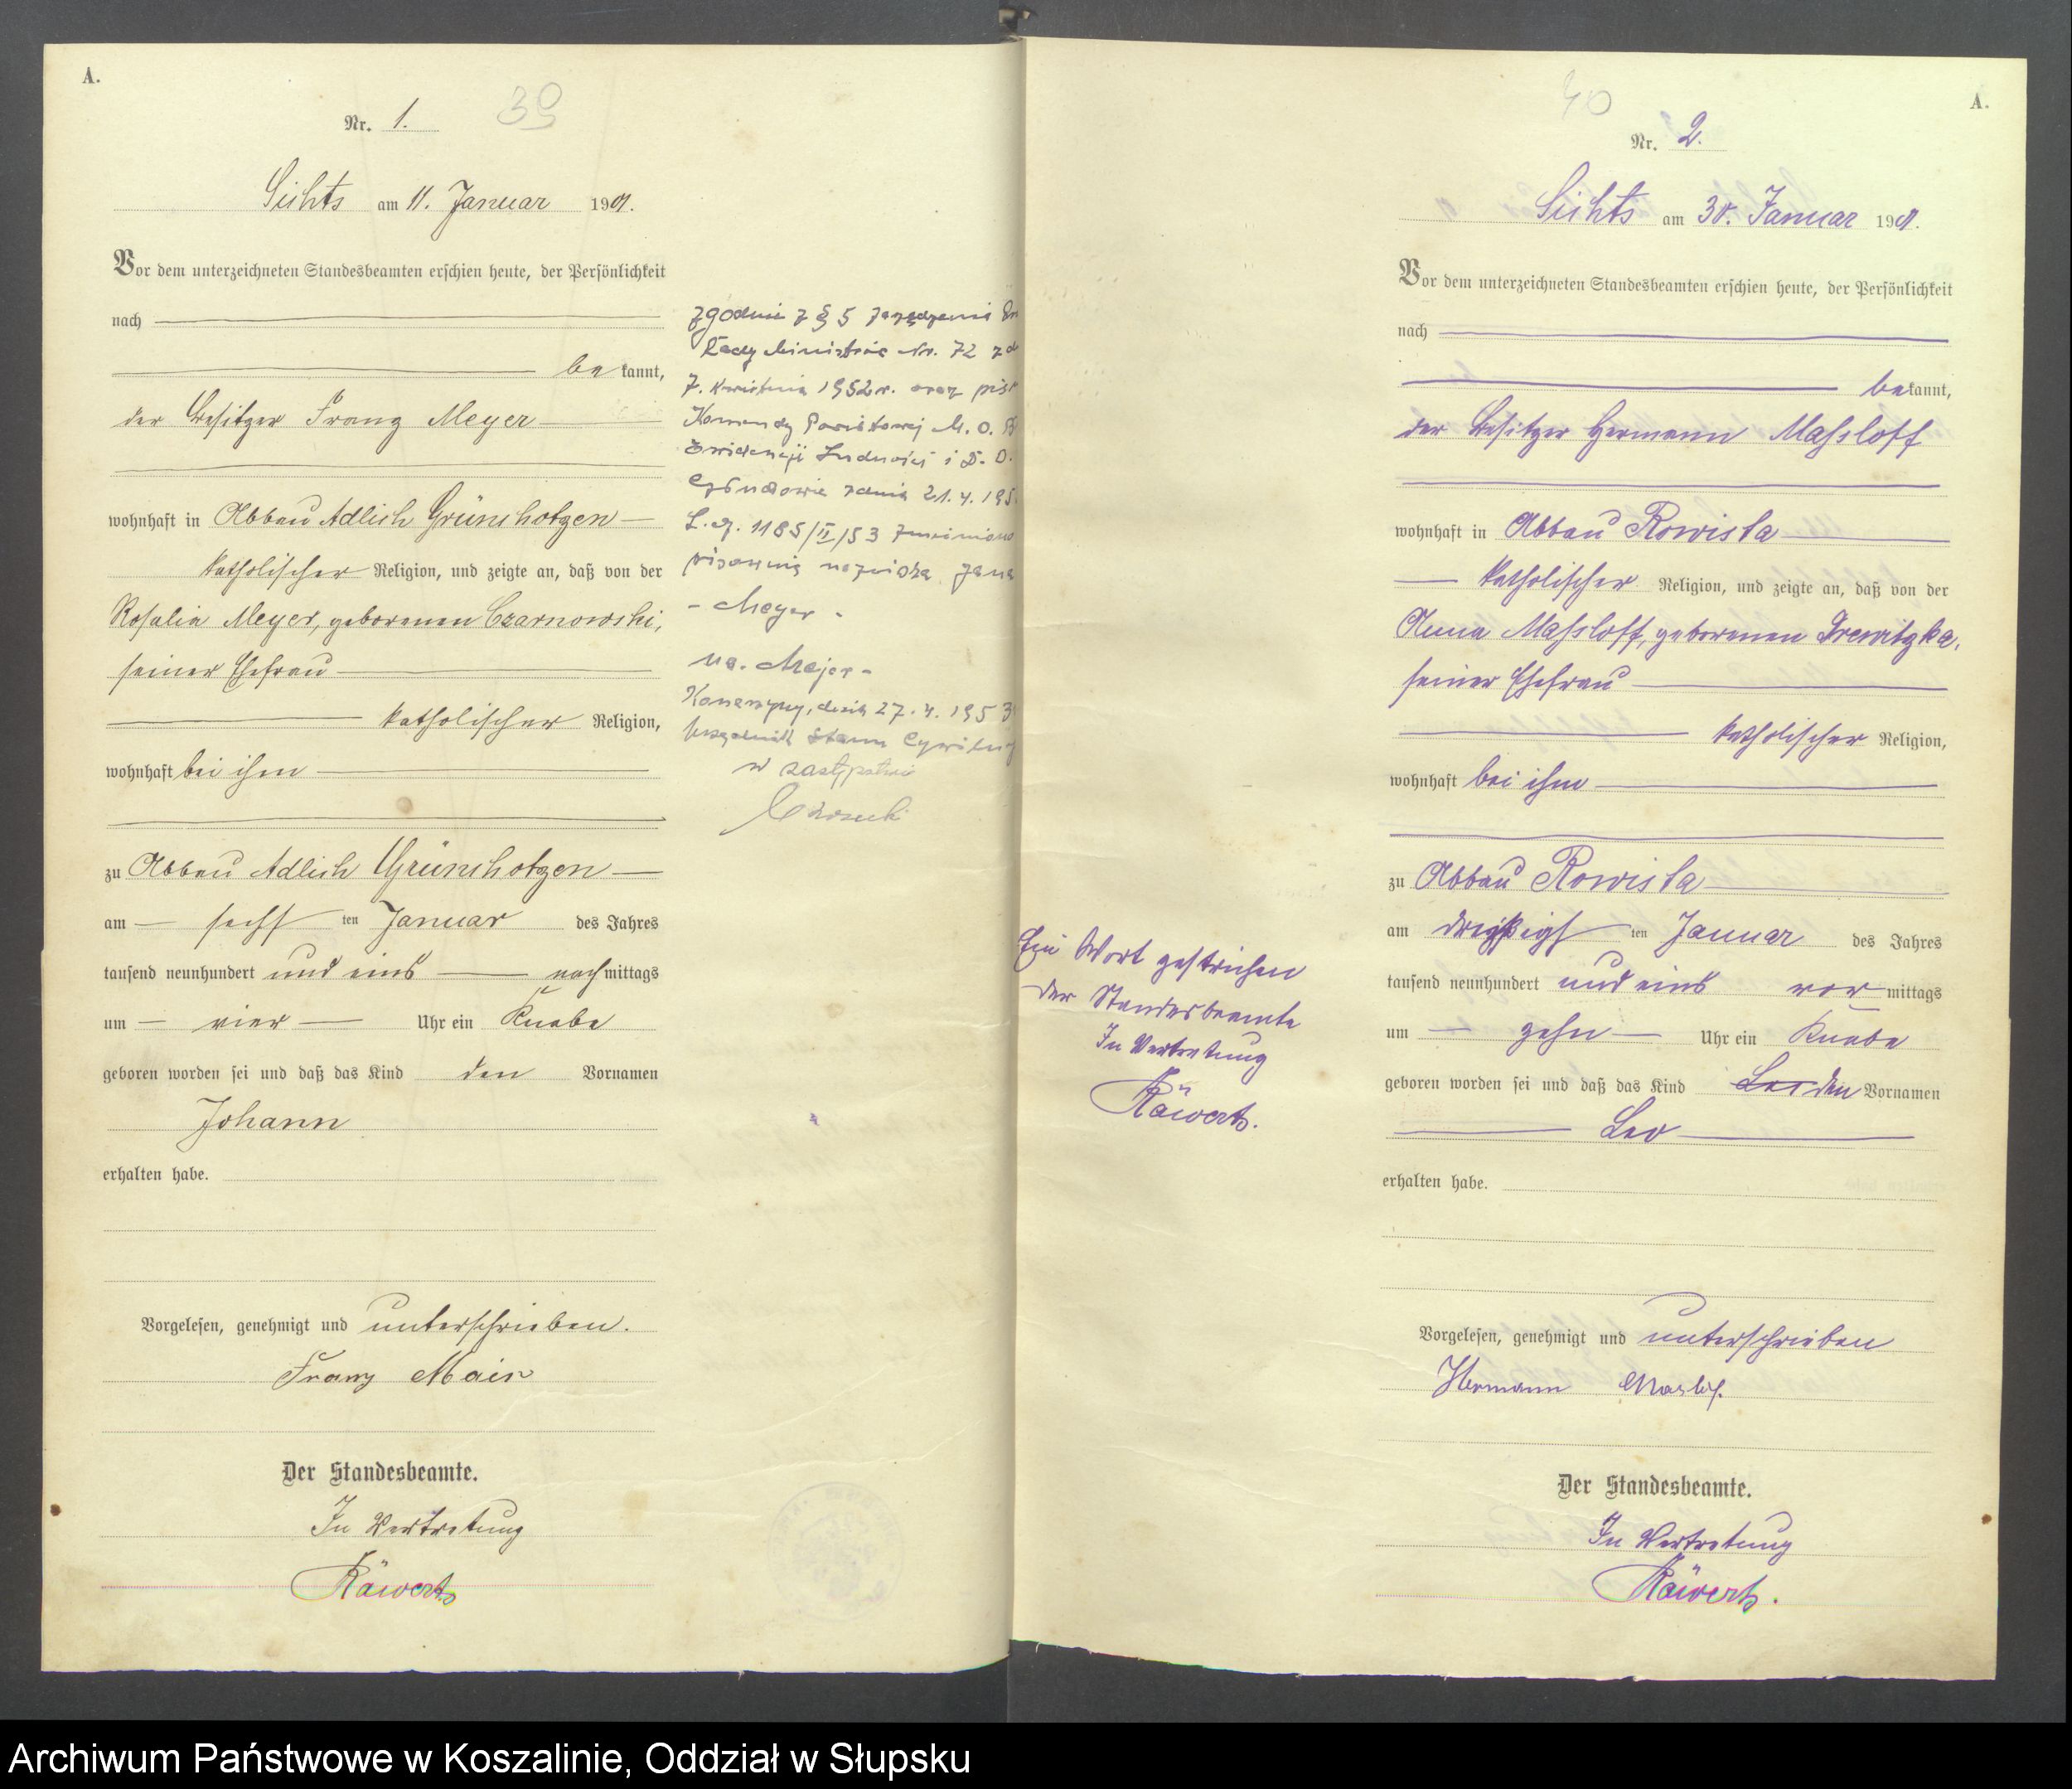 A.
Nr. 1.
39
Sichts am 11. Januar 1901.
Vor dem unterzeichneten Standesbeamten erschien heute, der Persönlichkeit
nach
bekannt,
der Besitzer Franz Meyer
wohnhaft in Abbau Adlich Grünchotzen
katholischer Religion, und zeigte an, daß von der
Rosalia Meyer, geborenen Czarnowski,
seiner Ehefrau
katholischer Religion,
wohnhaft bei ihm
zu Abbau Adlich Grünchotzen
am sechsten Januar des Jahres
tausend neunhundert und eins nachmittags
um vier Uhr ein Knabe
geboren worden sei und daß das Kind den Vornamen
Johann
erhalten habe.
Vorgelesen, genehmigt und unterschrieben.
Franz
Der Standesbeamte.
In Vertretung
Räwerts
zgodnie z § 5 zarządzenia
Rady Ministrów Nr. 72 z
7. kwietnia 1952 r. oraz
Komendy Powiatowej M. O.
Ewidencji Ludności i D. O.
Człuchowie z dnia 21. 4. 195
L. dz. 1185/II/53 zmieniono
pisownię nazwiska Jana
- Meyer -
na - Majer -
Konarzyny, dnia 27. 4. 1953
Urzędnik Stanu Cywilnego
w zastępstwie
40
A.
Nr. 2.
Sichts am 30. Januar 1901.
Vor dem unterzeichneten Standesbeamten erschien heute, der Persönlichkeit
nach
bekannt,
der Besitzer Hermann Maßloff
wohnhaft in Abbau Rowista
katholischer Religion, und zeigte an, daß von der
Anna Maßloff, geborenen Drewitzka,
seiner Ehefrau
katholischer Religion,
wohnhaft bei ihm
zu Abbau Rowista
am dreißigsten Januar des Jahres
tausend neunhundert und eins vormittags
um zehn Uhr ein Knabe
geboren worden sei und daß das Kind Leo den Vornamen
Leo
erhalten habe.
Vorgelesen, genehmigt und unterschrieben
Hermann
Der Standesbeamte.
In Vertretung
Räwerts.
Ein Wort gestrichen
der Standesbeamte
In Vertretung
Räwerts.
Archiwum Państwowe w Koszalinie, Oddział w Słupsku